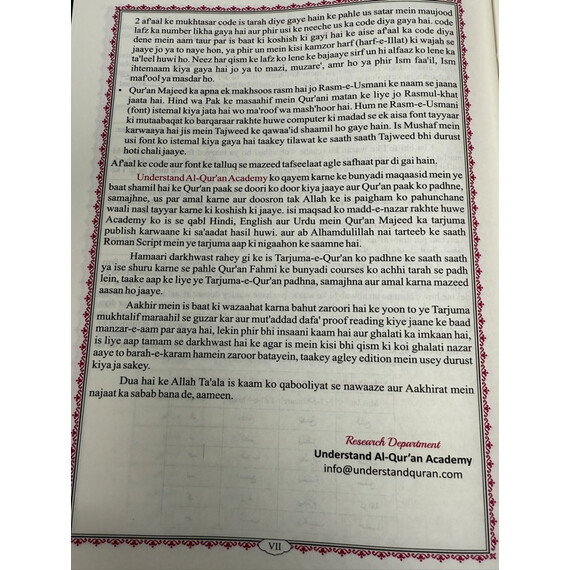 2 af'aal ke mukhtasar code is tarah diye gaye hain ke pahle us satar mein maujood
lafz ka number likha gaya hai aur phir usi ke neeche us ka code diya gaya hai. code
dene mein aam taur par is baat ki koshish ki gayi hai ke aise af'aal ka code diya
jaaye jo ya to naye hon, ya phir un mein kisi kamzor harf (harf-e-Illat) ki wajah se
ta'leel huwi ho. Neez har qism ke lafz ko lene ke bajaaye sirf un hi alfaaz ko lene ka
ihtemaam kiya gaya hai jo ya to mazi, muzare', amr ho ya phir Ism faa'il, Ism
maf'ool ya masdar ho.
• Qur'an Majeed ka apna ek makhsoos rasm hai jo Rasm-e-Usmani ke naam se jaana
jaata hai. Hind wa Pak ke masaahif mein Qur'ani matan ke liye jo Rasmul-khat
(font) istemal kiya jata hai wo ma'roof wa mash'hoor hai. Hum ne Rasm-e-Usmani
ki mutaabaqat ko barqaraar rakhte huwe computer ki madad se ek aisa font tayyaar
karwaaya hai jis mein Tajweed ke qawaa'id shaamil ho gaye hain. Is Mushaf mein
usi font ko istemal kiya gaya hai taakey tilawat ke saath saath Tajweed bhi durust
hoti chali jaaye.
Af'aal ke code aur font ke talluq se mazeed tafseelaat agle safhaat par di gai hain.
Understand Al-Qur'an Academy ko qayem karne ke bunyadi maqaasid mein ye
baat shamil hai ke Qur'an paak se doori ko door kiya jaaye aur Qur'an paak ko padhne,
samajhne, us par amal karne aur doosron tak Allah ke is paigham ko pahunchane
waali nasl tayyar karne ki koshish ki jaaye. isi maqsad ko madd-e-nazar rakhte huwe
Academy ko is se qabl Hindi, English aur Urdu mein Qur'an Majeed ka tarjuma
publish karwaane ki sa'aadat hasil huwi. aur ab Alhamdulillah nai tarteeb ke saath
Roman Script mein ye tarjuma aap ki nigaahon ke saamne hai.
Hamaari darkhwast rahey gi ke is Tarjuma-e-Qur'an ko padhne ke saath saath
ya ise shuru karne se pahle Qur'an Fahmi ke bunyadi courses ko achhi tarah se padh
lein, taake aap ke liye ye Tarjuma-e-Qur'an padhna, samajhna aur amal karna mazeed
aasan ho jaaye.
Aakhir mein is baat ki wazaahat karna bahut zaroori hai ke yoon to ye Tarjuma
mukhtalif maraahil se guzar kar aur mut'addad dafa' proof reading kiye jaane ke baad
manzar-e-aam par aaya hai, lekin phir bhi insaani kaam hai aur ghalati ka imkaan hai,
is liye aap tamam se darkhwast hai ke agar is mein kisi bhi qism ki koi ghalati nazar
aaye to barah-e-karam hamein zaroor batayein, taakey agley edition mein usey durust
kiya ja sakey.
Dua hai ke Allah Ta'ala is kaam ko qabooliyat se nawaaze aur Aakhirat mein
najaat ka sabab bana de, aameen.
Research Department
Understand Al-Qur'an Academy
info@understandquran.com
VII